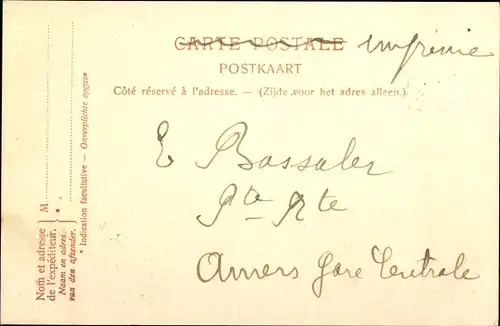 CARTE POSTALE Imprimé
POSTKAART
Côté réservé à l'adresse. — (Zijde voor het adres alleen.)
E Bassaler
Pte Rte
Anvers Gare Centrale
Nom et adresse
de l'expéditeur.
Naam en adres
van den afzender.
M
*
* Indication facultative — Onverplichte opgave